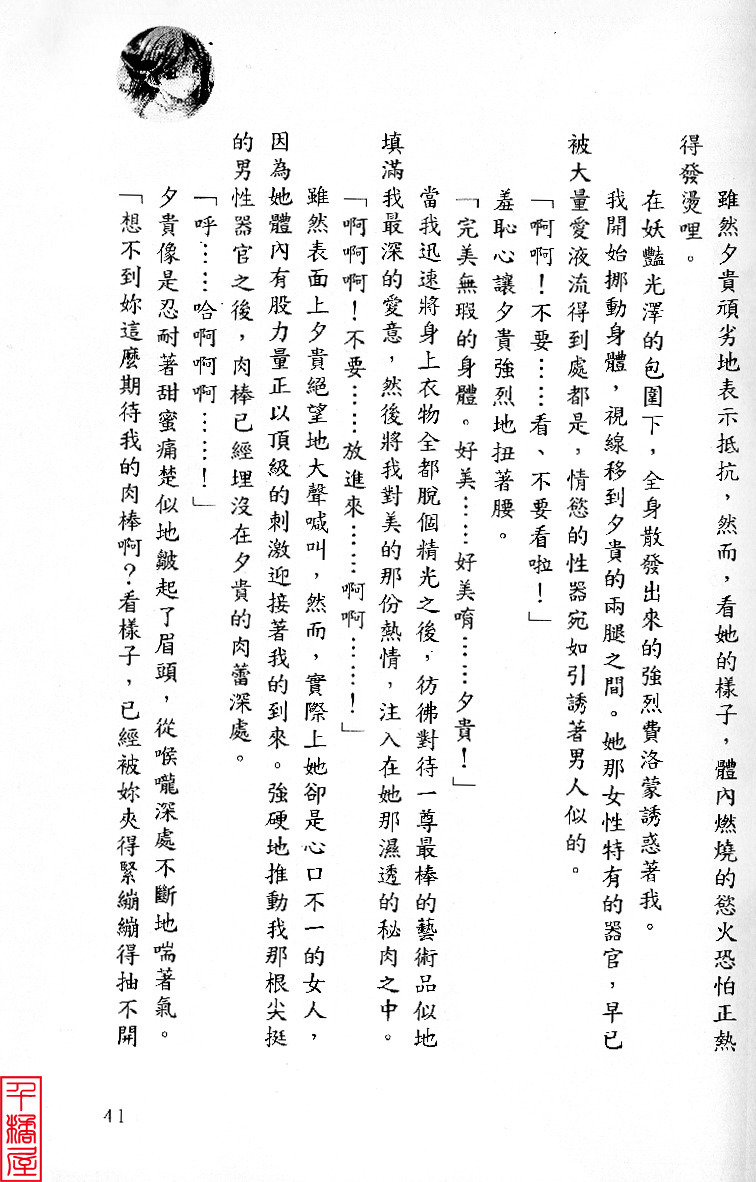 雖然夕貴頑劣地表示抵抗，然而，看她的樣子，體內燃燒的慾火恐怕正熱
得發燙哩。
在妖豔光澤的包圍下，全身散發出來的強烈費洛蒙誘惑著我。
我開始挪動身體，視線移到夕貴的兩腿之間。她那女性特有的器官，早已
被大量愛液流得到處都是，情慾的性器宛如引誘著男人似的。
「啊啊！不要……看、不要看啦！」
羞恥心讓夕貴強烈地扭著腰。
「完美無瑕的身體。好美……好美唷……夕貴！」
當我迅速將身上衣物全都脫個精光之後，彷彿對待一尊最棒的藝術品似地
填滿我最深的愛意，然後將我對美的那份熱情，注入在她那濕透的秘肉之中。
「啊啊啊！不要……放進來……啊啊……！」
雖然表面上夕貴絕望地大聲喊叫，然而，實際上她卻是心口不一的女人，
因為她體內有股力量正以頂級的刺激迎接著我的到來。強硬地推動我那根尖挺
的男性器官之後，肉棒已經埋沒在夕貴的肉蕾深處。
「呼……哈啊啊啊……！」
夕貴像是忍耐著甜蜜痛楚似地皺起了眉頭，從喉嚨深處不斷地喘著氣。
「想不到妳這麼期待我的肉棒啊？看樣子，已經被妳夾得緊繃繃得抽不開
41
千橘屋